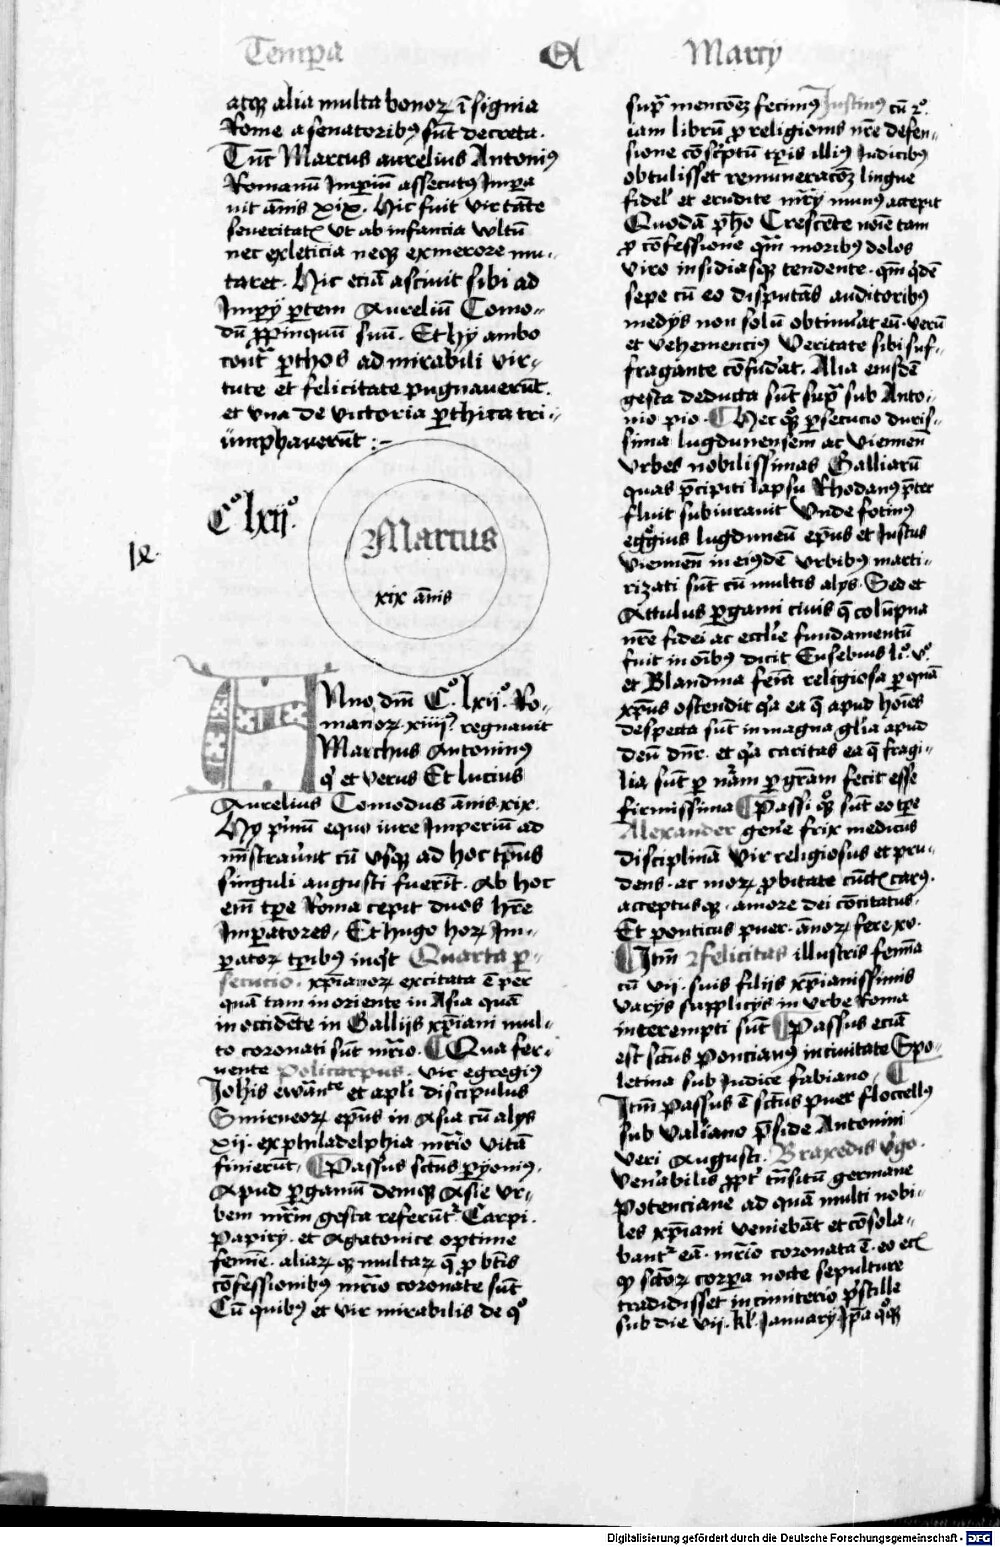 Tempa A Marcy
atqꝫ alia multa bonoꝝ īsignia
Rome a senatoribꝰ sūt decreta.
Tūc Marcus aurelius Antoniꝰ
Romanū Imperiū assecutꝰ Impa
uit ānis xix. Hic fuit virtāte
seueritatꝭ vt ab infancia vltū
nec exleticia neqꝫ exmerore mu-
taret. Hic eciā asciuit sibi ad
Impij ꝑtem Aureliū Como-
dū ꝓpinquū suū. Et hij ambo
cont̄ ꝑthos ad mirabili vir-
tute et felicitate pugnauerūt.
et vna de victoria ꝑthica tri-
umphauerūt :-
Cͦ lxijͦ.
ix.
Marcus
xix ānis
ANno dn̄i Cͦ. lxijͦ. Ro-
manoꝝ. xiiijͦ. regnauit
Marchus Antoninꝰ
q̄ et verus Et lucius
Aurelius Comodus ānis xix.
Hij pͥmū equo iure Imperiū ad
mīstraūt cū vsqꝫ ad hoc tp̄us
singuli augusti fuerīt. Ab hoc
em̄ tꝑe Roma cepit duos hr̄e
Imꝑatores. Et hugo hoꝝ Im-
ꝑatoꝝ tꝑibꝰ inest Quarta ꝑ-
secucio. xp̄ianoꝝ excitata ē per
quā tam in oriente in Asia quā
in occidēte in Gallijs xp̄iani mul-
to coronati sūt mr̄io. Qua fer-
uente Policarpus. vir egregiꝰ
Johīs ewāntͤ et apl̄i discipulus
Smirneoꝝ ep̄us in Asia cū alijs
xij. ex philadelphia mr̄io vitā
finierūt. Passus sc̄tus ꝑyoniꝰ.
Apud ꝑgamū demqꝫ Asie vr-
bem mr̄m gesta referūtͬ. Carpi.
Papirij. et Agatonice optime
femīe. aliaꝝ qꝫ multaꝝ q̄ ꝓ btīs
cōfessionibꝰ mr̄io coronate sūt
Cū quibꝰ et vir mirabilis de qͦ
supͣ mencōeꝫ fecimꝰ Iustinꝰ cū ẜͦ.
iam librū ꝓ religionis nr̄e defen-
sione cōsc̄ptū tꝑis illiꝰ Iudicibꝰ
obtulisset remuneracōeꝫ lingue
fidel̄ et erudite mr̄ij munꝰ accepit
Quodā pho Crescēte noīe tam
ꝓ cōfessione qm̄ moribꝰ dolos
viro insidiasqꝫ tendente. qm̄ q̄dē
sepe cū eo disputās auditoribꝰ
medijs non solū obtinuat eū. verū
et vehemenciꝰ veritate sibi suf-
fragante cōfudat. Alia eiusdē
gesta deducta sūt supͣ sub Anto-
nio pio. Hec qͦꝫ ꝑsecucio duris-
sima lugdunensem ac viennen̄
vrbes nobilissimas Galliarū
quas p̄cipiti lapsu Rhodanꝰ p̄ter
fluit subiurauit Vnde fotinꝰ
egrgius lugdunēū ep̄us et Iustus
viennen̄ in eiꝰdē vrbibꝰ marti-
rizati sūt cū multis alijs. Sed et
Attulus ꝑgami ciuis q̄ colūpna
nr̄e fidei ac eccl̄ie fundamentū
fuit in oībꝰ dicit Eusebius liͦ. vͦ.
et Blandina feīa religiosa ꝑ quā
xp̄us ostendit qͣ ea q̄ apud hoīes
despecta sūt in magna glīa apud
deū dn̄r. et qͣ caritas ea q̄ fragi-
lia sūt ꝑ nām ꝑ grām fecit esse
firmissima Passi qͦꝫ sūt eo tꝑe
Alexander geīe frix medicus
disciplinā vir religiosus et pru-
dens. ac moꝝ ꝓbitate cūctꝭ carꝰ.
acceptusqꝫ. amore dei cōcitatus.
Et ponticus puer. ānoꝝ fere xv.
Itm̄ felicitas illustris femīa
cū vij. suis filijs xp̄ianissimis
varijs supplicijs in vrbe Roma
interempti sūt Passus eciā
est sc̄tus Poncianꝰ in ciuitate Spo-
letina sub Iudice fabiano.
Itm̄ passus ē sc̄tus puer flocellꝰ
sub Valiano p̄side Antonini
veri Augusti. Braxedis v̄go.
venabilis ꝓpt̄ tn̄sitū germane
Potenciane ad quā multi nobi-
les xp̄iani veniebāt et cōsola-
bantͬ eā. mr̄io coronata ē. eo ec̄
qͦ sc̄toꝝ corꝑa nocte sepulture
tradidisset in cimiterio p̄stille
sub die vij. kl̄. Ianuarij Ip̄a qͦqꝫ
Digitalisierung gefördert durch die Deutsche Forschungsgemeinschaft - DFG